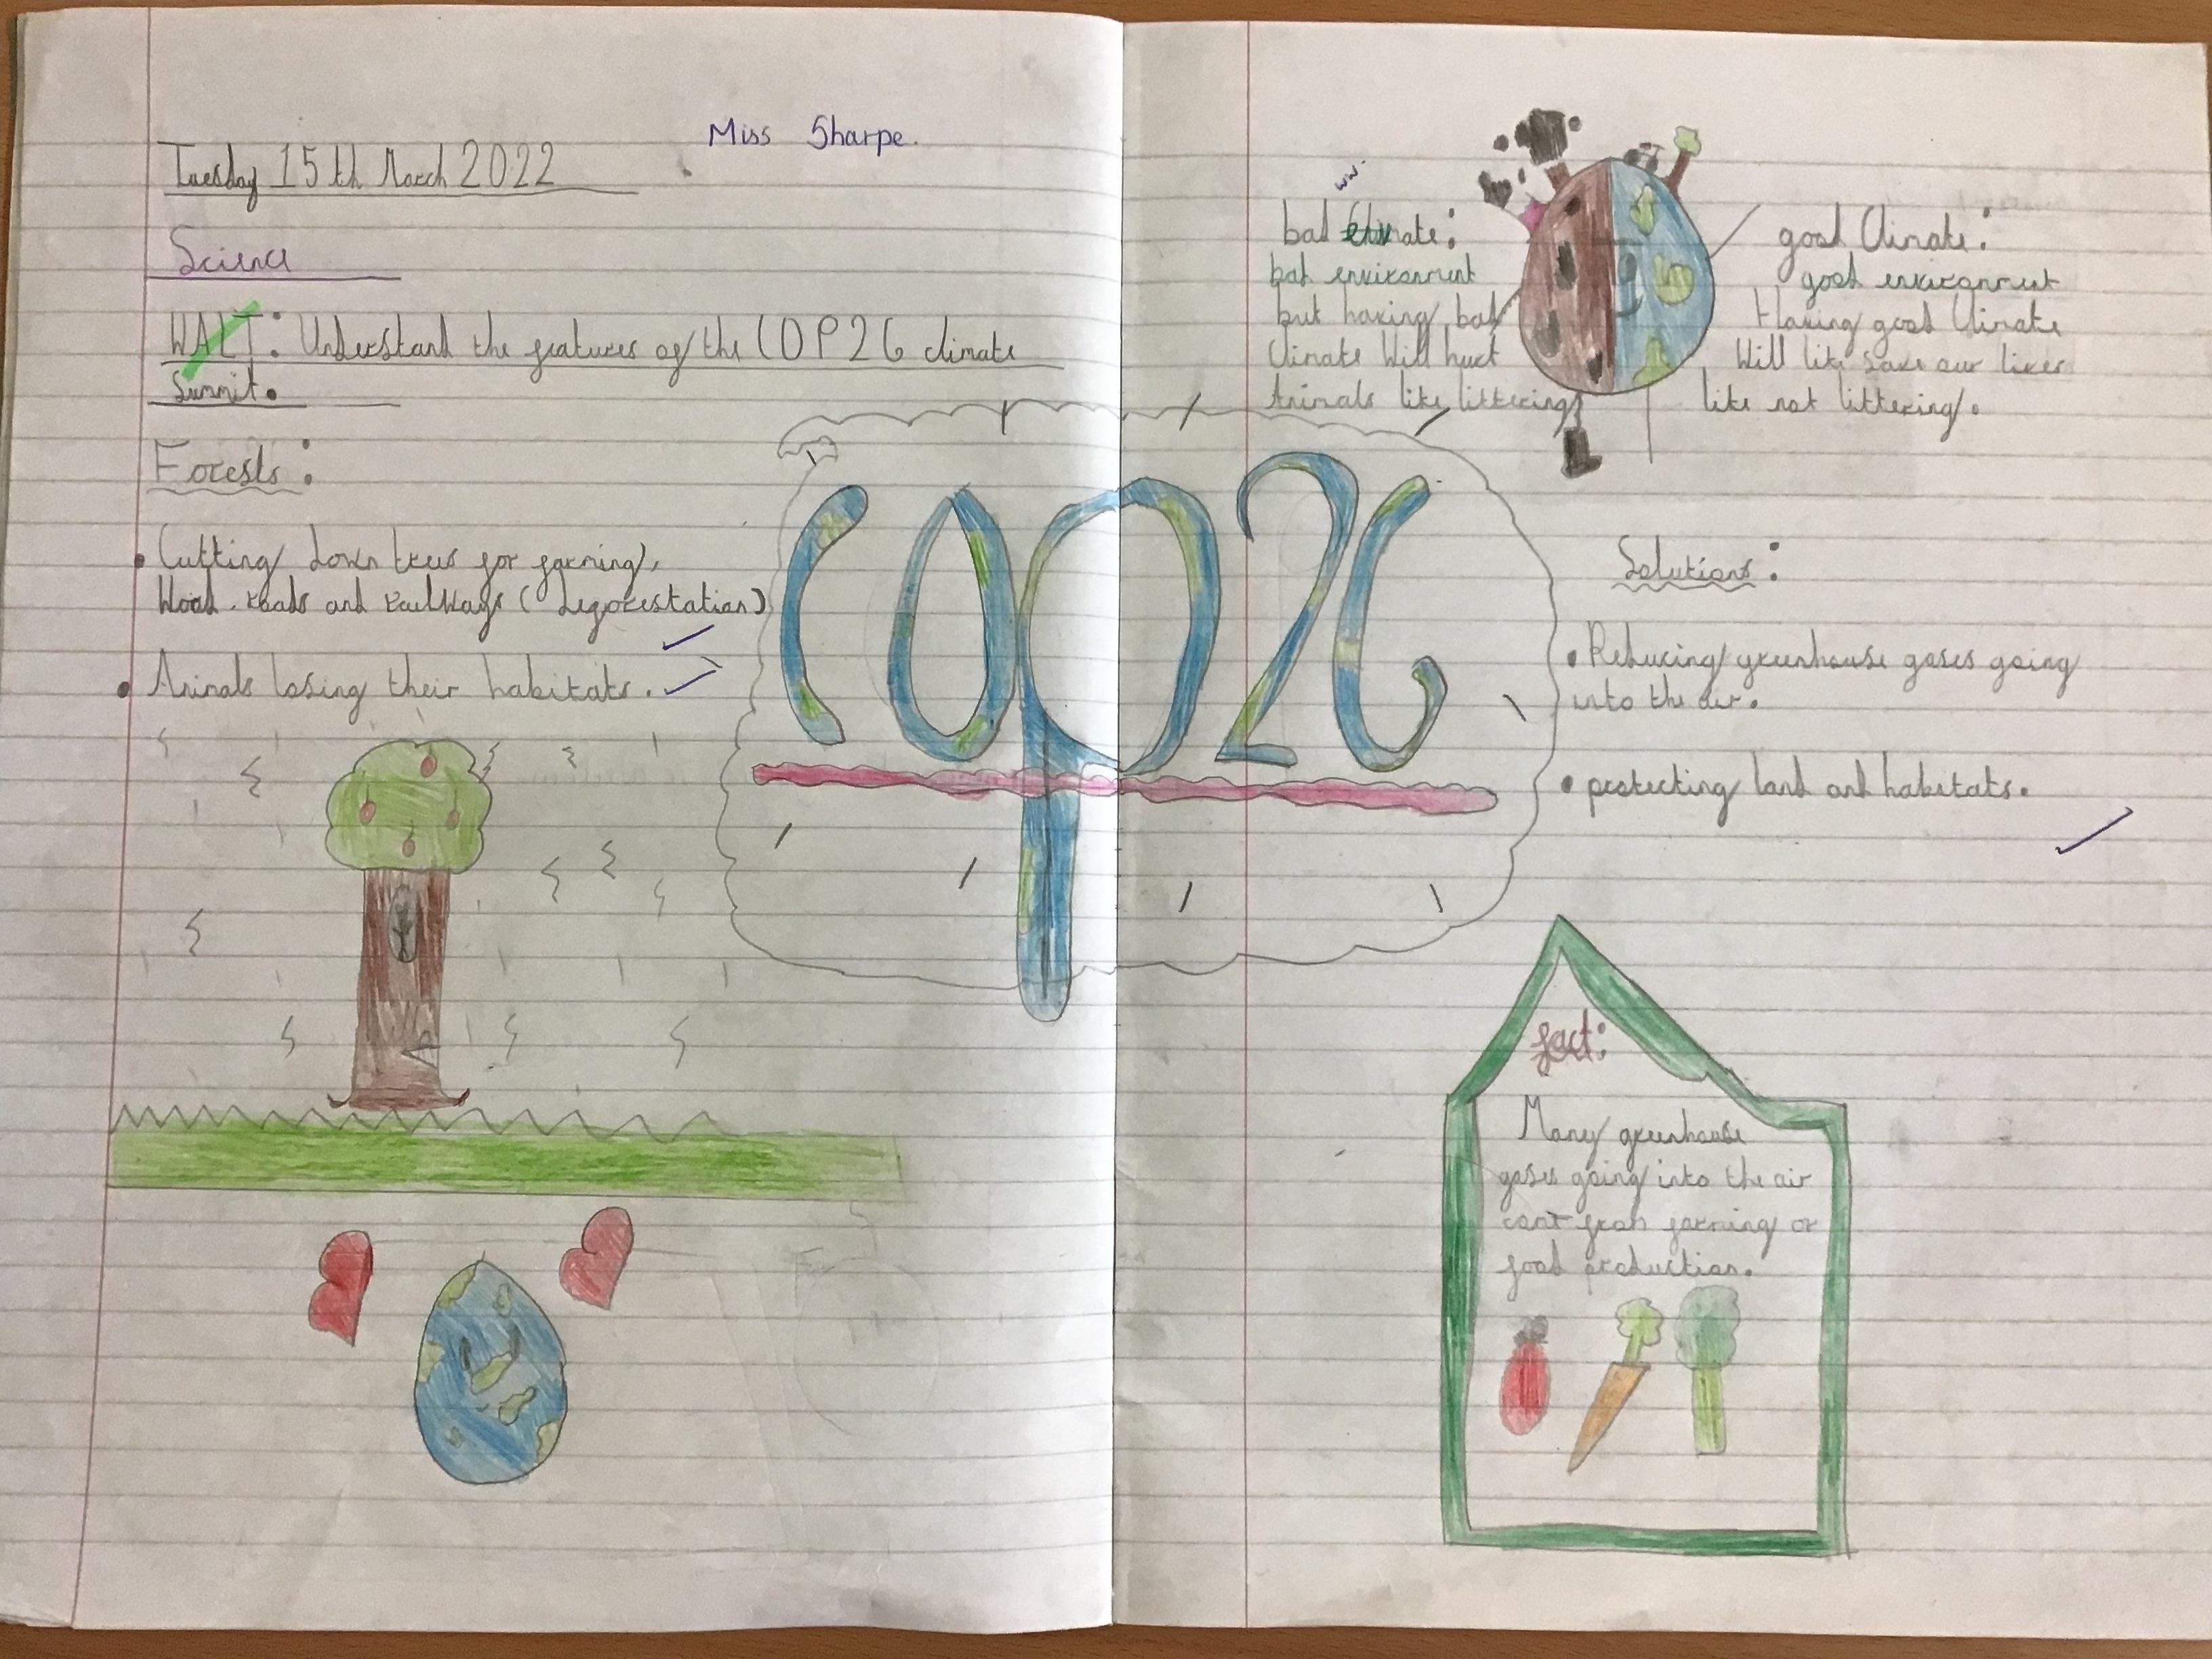 Miss Sharpe.
Tuesday 15th March 2022
Science
WALT: Understand the features of the COP26 climate
Summit.
Forests:
• Cutting down trees for farming,
Wood. roads and railways (deforestation)
• Animals losing their habitats.
COP26
ww.
bad climate:
bad envixonment
but having bad
Climate Will hurt
Animals like littering
good Climate:
good envixonment
Having good Climate
Will like save our lives
like not littering.
Solutions:
• Reducing greenhouse gases going
into the air.
• protecting land and habitats.
fact:
Many greenhouse
gases going into the air
farming or
food production.